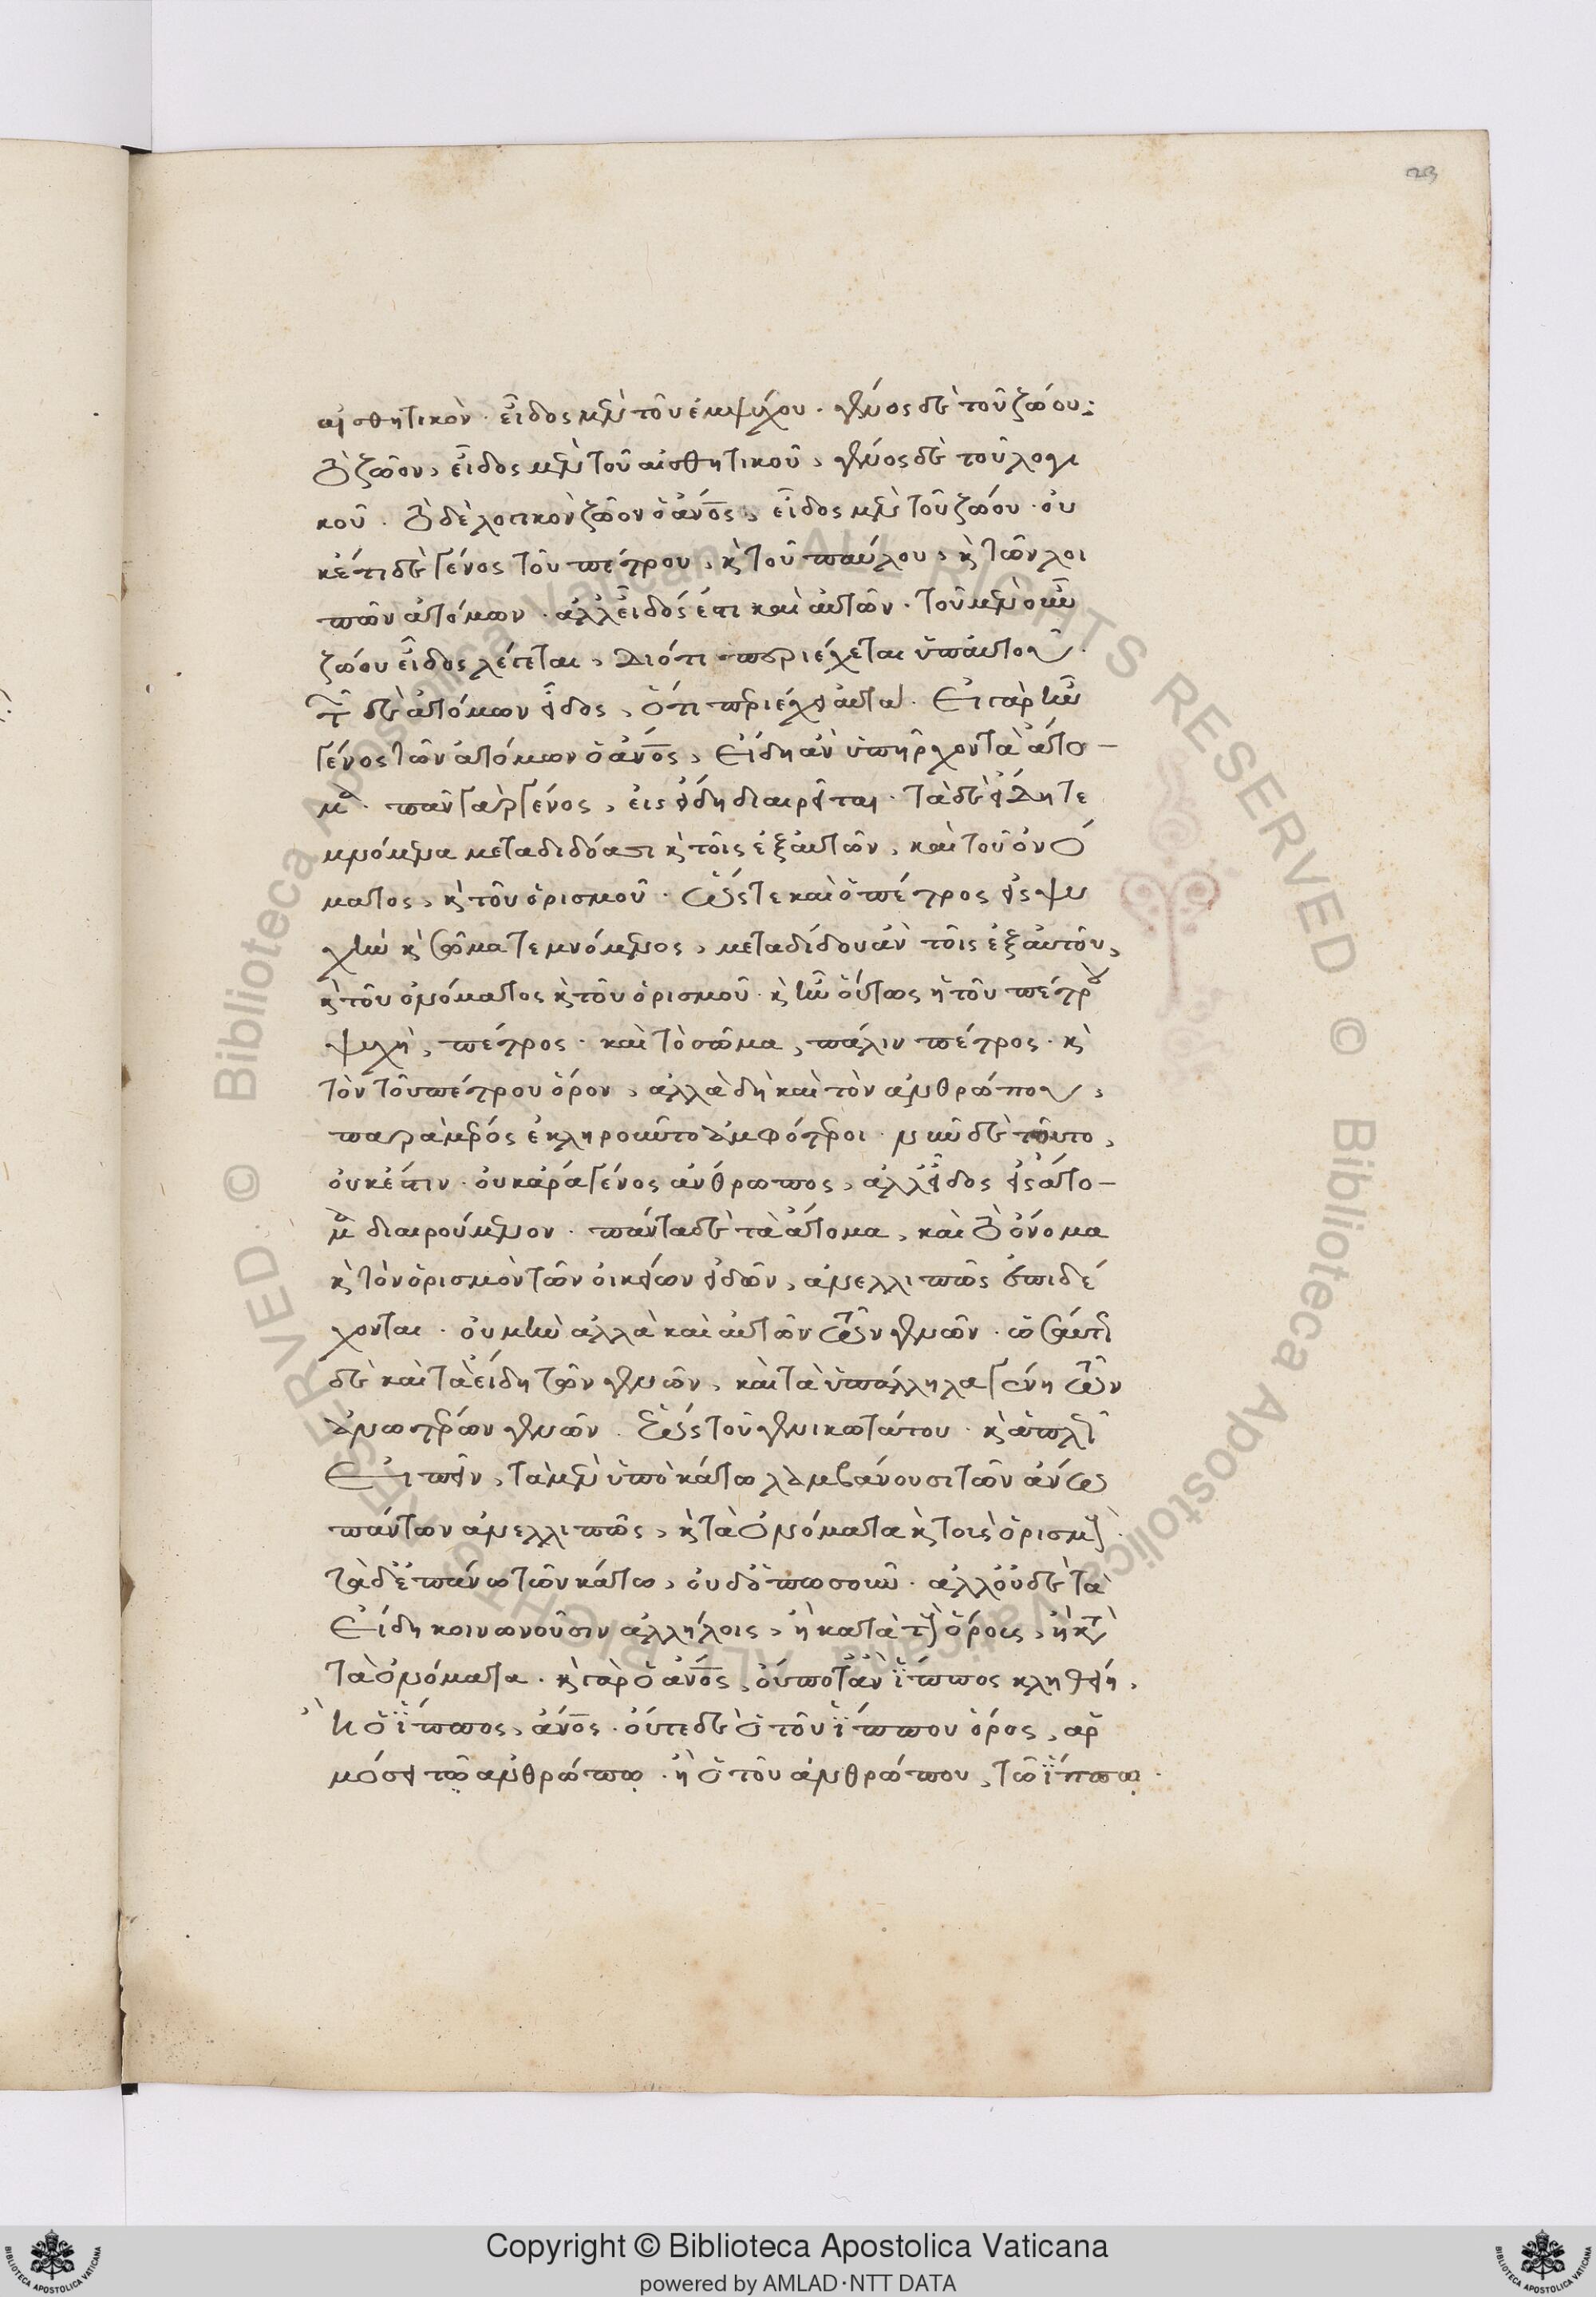 23
αἰσθητικὸν· εἶδος μὲν τοῦ ἐμψύχου· γένος δὲ τοῦ ζώου:
τὸ ζῶον, εἶδος μὲν τοῦ αἰσθητικοῦ, γένος δὲ τοῦ λογι
κοῦ· τὸ δὲ λογικὸν ζῶον ὁ ἄνος, εἶδος μὲν τοῦ ζώου· οὐ
κέτι δὲ γένος τοῦ πέτρου, κ τοῦ παύλου, κ τῶν λοι
πῶν ἀτόμων· ἀλλεῖδός ἐστι καὶ αὐτῶν· τοῦ μὲν οὖν
ζώου εἶδος λέγεται, διότι περιέχεται ὑπαυτοῦ·
τῶν δὲ ἀτόμων εἶδος, ὅτι περιέχει αὐτά· Εἰ γὰρ ἦν
γένος τῶν ἀτόμων ὁ ἄνος, εἴδη ἂν ὑπῆρχον τὰ ἄτο
μα· πᾶν γὰρ γένος, εἰς εἴδη διαιρεῖται· τὰ δὲ εἴδη τε
μνόμενα μεταδιδόασι κ τοῖς ἐξαυτῶν, καὶ τοῦ ὀνό
ματος, κ τοῦ ὁρισμοῦ· ὥστε καὶ ὁ πέτρος εἰς ψυ
χὴν κ σῶμα τεμνόμενος, μεταδίδου ἂν τοῖς ἐξαυτοῦ,
κ τοῦ ὀνόματος κ τοῦ ὁρισμοῦ· κ ἦν οὕτως ἡ τοῦ πέτρου
ψυχὴ, πέτρος· καὶ τὸ σῶμα, πάλιν πέτρος· κ
τὸν τοῦ πέτρου ὅρον, ἀλλὰ δὴ καὶ τὸν ἀνθρώπου,
παρὰ μέρος ἐκληροῦντο ἀμφότεροι· νῦν δὲ τοῦτο,
οὐκ ἔστιν· οὐκ ἄρα γένος ἄνθρωπος, ἀλλεῖδος εἰς ἄτο
μα διαιρούμενον· πάντα δὲ τὰ ἄτομα, καὶ τὸ ὄνομα
κ τὸν ὁρισμὸν τῶν οἰκείων εἰδῶν, ἀνελλιπῶς ἐπιδέ
χονται· οὐ μὴν ἀλλὰ καὶ αὐτῶν τῶν γενῶν· ὡσαύτως
δὲ καὶ τὰ εἴδη τῶν γενῶν, καὶ τὰ ὑπάλληλα γένη τῶν
ἀνωτέρων γενῶν· ἕως τοῦ γενικωτάτου· κ ἁπλῶς
Εἰπεῖν, τὰ μὲν ὑποκάτω λαμβάνουσι τῶν ἄνω
πάντων ἀνελλιπῶς, κ τὰ ὀνόματα κ τοὺς ὁρισμούς·
τὰ δἐπάνω τῶν κάτω, οὐδὁπωσοῦν· ἀλλοὐδὲ τὰ
Εἴδη κοινωνοῦσιν ἀλλήλοις, ἢ κατὰ τοὺς ὅρους, ἢ κατὰ
τὰ ὀνόματα· κ γὰρ ὁ ἄνος, οὔποτἂν ἵππος κληθείη,
ἢ ὁ ἵππος, ἄνος· οὔτε δὲ ὁ τοῦ ἵππου ὅρος, ἁρ
μόσει τῷ ἀνθρώπῳ· ἢ ὁ τοῦ ἀνθρώπου, τῶ ἵππῳ·
Biblioteca Apostolica Vaticana ALL RIGHTS RESERVED ©
Copyright © Biblioteca Apostolica Vaticana
powered by AMLAD·NTT DATA
BIBLIOTECA APOSTOLICA VATICANA
BIBLIOTECA APOSTOLICA VATICANA